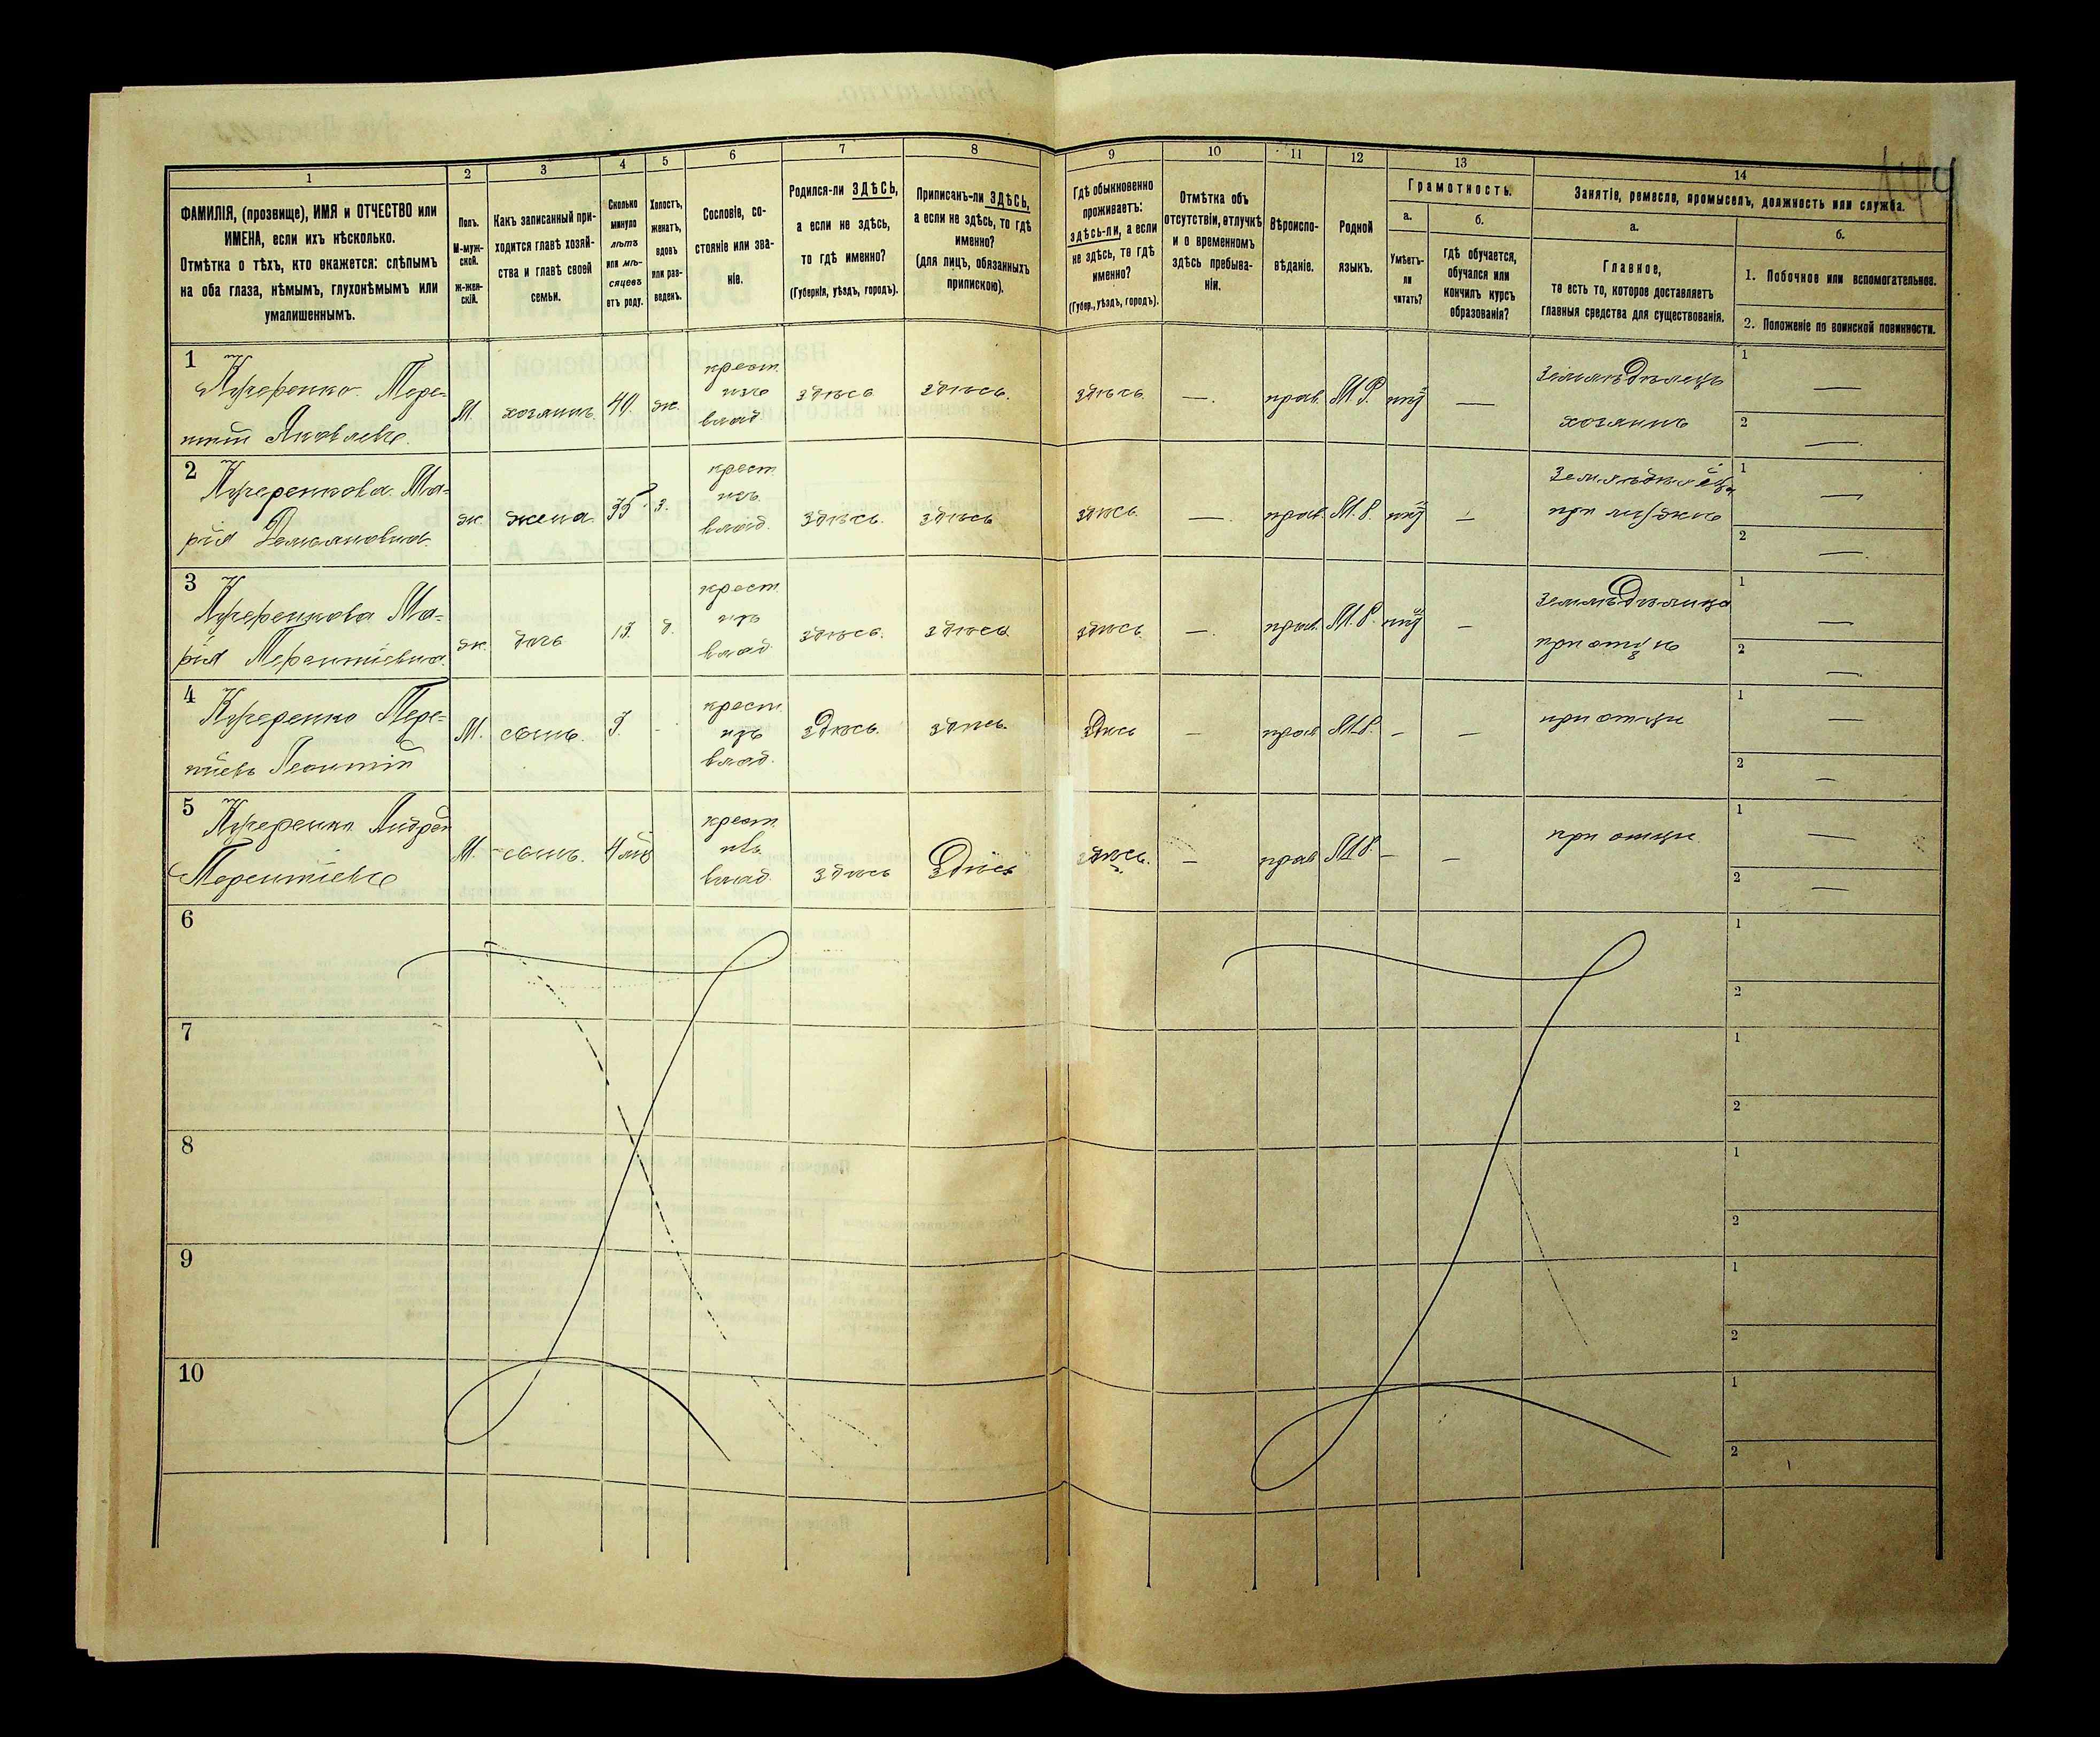 144
1 2 3 4 5 6 7 8 9 10 11 12 13 14
ФАМИЛІЯ, (прозвище), ИМЯ и ОТЧЕСТВО или
ИМЕНА, если ихъ нѣсколько.
Отмѣтка о тѣхъ, кто окажется: слѣпымъ
на оба глаза, нѣмымъ, глухонѣмымъ или
умалишеннымъ.
Полъ.
М-муж-
ской.
Ж-жен-
скій.
Какъ записанный при-
ходится главѣ хозяй-
ства и главѣ своей
семьи.
Сколько
минуло
лѣтъ
или мѣ-
сяцевъ
отъ роду.
Холостъ,
женатъ,
вдовъ
или раз-
веденъ.
Сословіе, со-
стояніе или зва-
ніе.
Родился-ли ЗДѢСЬ,
а если не здѣсь,
то гдѣ именно?
(Губернія, уѣздъ, городъ).
Приписанъ-ли ЗДѢСЬ,
а если не здѣсь, то гдѣ
именно?
(для лицъ, обязанныхъ
припискою).
Гдѣ обыкновенно
проживаетъ:
здѣсь-ли, а если
не здѣсь, то гдѣ
именно?
(Губер., уѣздъ, городъ).
Отмѣтка объ
отсутствіи, отлучкѣ
и о временномъ
здѣсь пребыва-
ніи.
Вѣроиспо-
вѣданіе.
Родной
языкъ.
Грамотность.
а.
Умѣетъ-
ли
читать?
б.
Гдѣ обучается,
обучался или
кончилъ курсъ
образованія?
Занятіе, ремесло, промыселъ, должность или служба.
а.
Главное,
то есть то, которое доставляетъ
главныя средства для существованія.
б.
1. Побочное или вспомогательное.
2. Положеніе по воинской повинности.
1 Кучеренко Тере-
нтій Яковлевъ.
М. хозяинъ 40. ж. крест. изъ влад. здѣсь здѣсь. здѣсь. —. прав. М.Р. нѣтъ —
Земледѣлецъ
хозяинъ
1 —
2 —
2 Кучеренкова Ма-
рія Демьяновна.
ж. жена. 35 з. крест. изъ влад. здѣсь. здѣсь здѣсь. —. прав. М.Р. нѣтъ —
при мужѣ
1 —
2 —
3 Кучеренкова Ма-
рія Терентіевна.
ж. дочь 13. д. крест. изъ влад. здѣсь. здѣсь здѣсь. —. прав. М.Р. нѣтъ —
Земледѣлица
при отцѣ
1 —
2 —
4 Кучеренко Терен-
тіевъ Леонтій
М. сынъ. 3. - крест. изъ влад. здѣсь. здѣсь. здѣсь — прав М.Р. — —
при отцѣ
1 —
2 —
5 Кучеренко Андрей
Терентіевъ
М. сынъ. крест. изъ влад. здѣсь здѣсь здѣсь. — прав М.Р. — —
при отцѣ
1 —
2 —
6
1
2
7
1
2
8
1
2
9
1
2
10
1
2